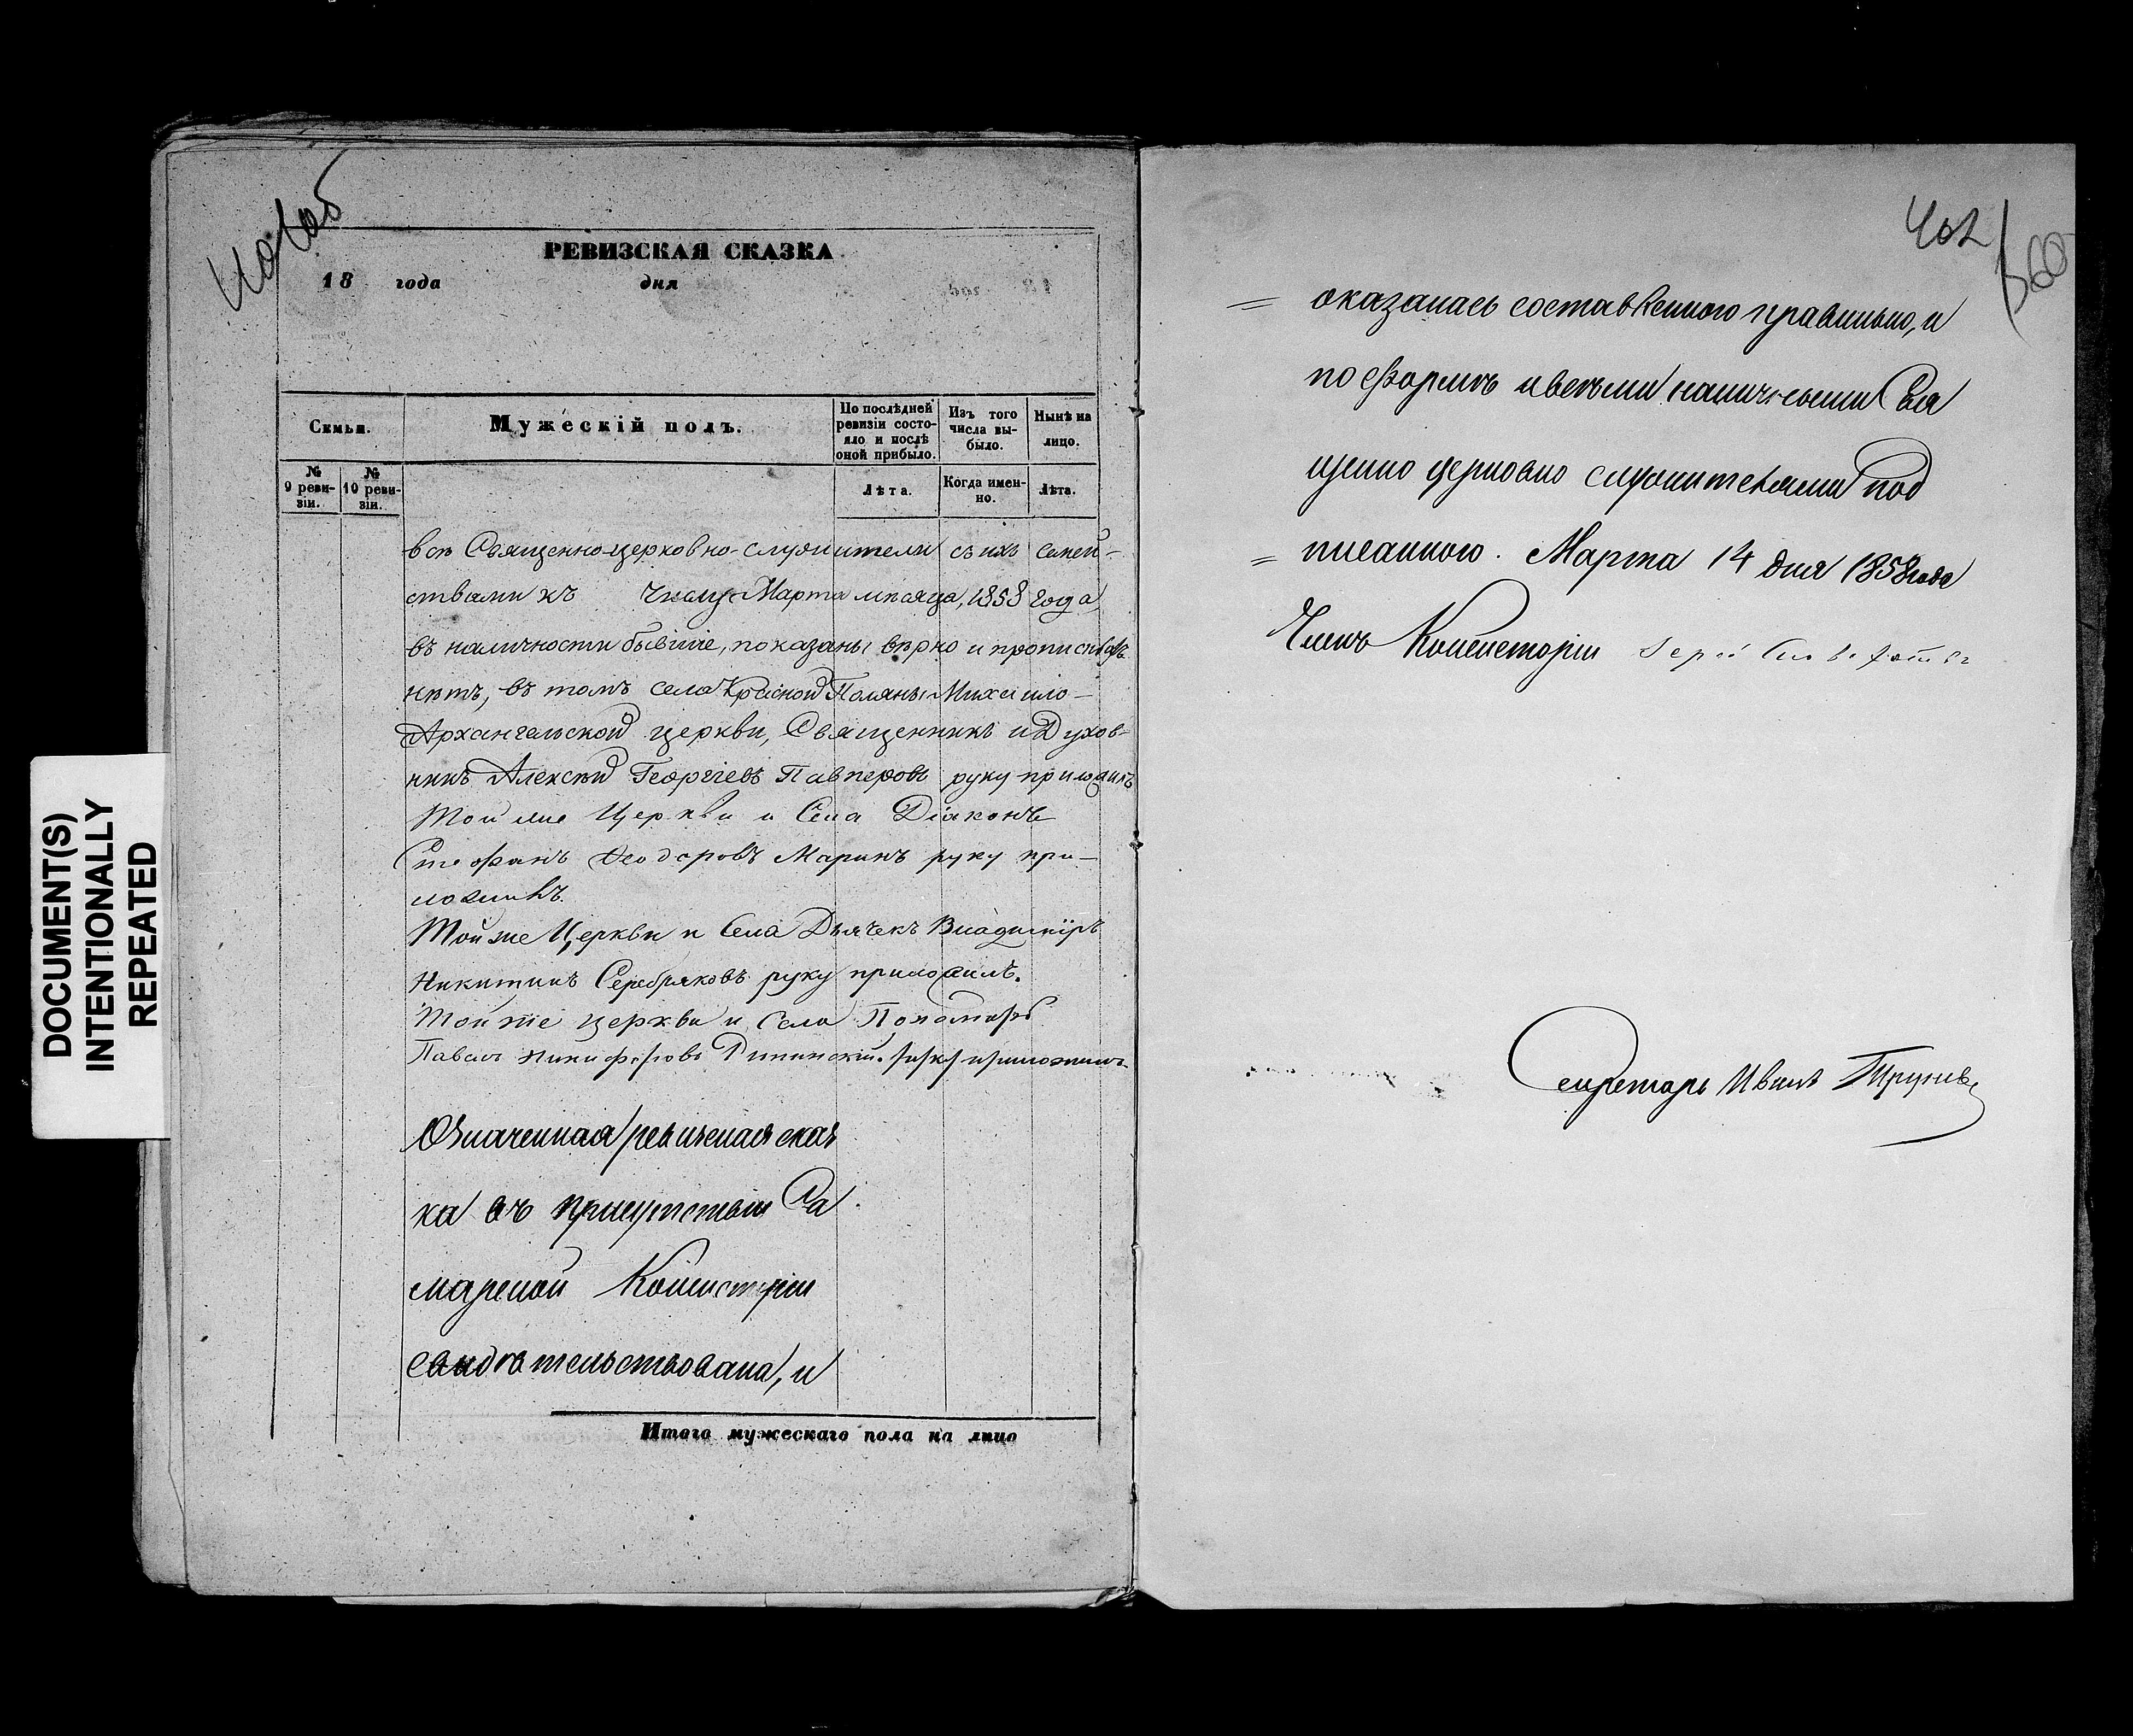 DOCUMENT(S)
INTENTIONALLY
REPEATED
РЕВИЗСКАЯ СКАЗКА
18 года дня
Семьи.
Мужескій полъ.
По послѣдней ревизіи состояло и послѣ оной прибыло.
Изъ того числа выбыло.
Нынѣ на лицо.
№ 9 ревизіи.
№ 10 ревизіи.
Лѣта.
Когда именно.
Лѣта.
всѣ Священно-церковно-служители съ ихъ семей-
ствами къ числу Марта мѣсяца, 1858 года,
въ наличности бывшіе, показаны вѣрно и прописныхъ
нѣтъ, въ томъ села Красной Поляны Михаило-
Архангельской церкви, Священникъ и Духов-
никъ Алексѣй Георгіевъ руку приложилъ
Той же Церкви и Села Діаконъ
Стефанъ Ѳеодоровъ Маринъ руку при-
ложилъ.
Той же Церкви и Села Дьячекъ Владиміръ
Никитинъ Серебряковъ руку приложилъ.
Той же церкви и Села Пономарь
Павелъ Никифоровъ руку приложилъ
Означенная ревизская сказ
ка въ присутствіи Са
марской Консисторіи
свидѣтельствована, и
Итого мужескаго пола на лицо
402
360
= оказалась составленною правильно, и
по формѣ и всѣми наличными Свя
щенно церковно служителями под
= писанною. Марта 14 дня 1858 года
Членъ Консисторіи
Секретарь Иванъ